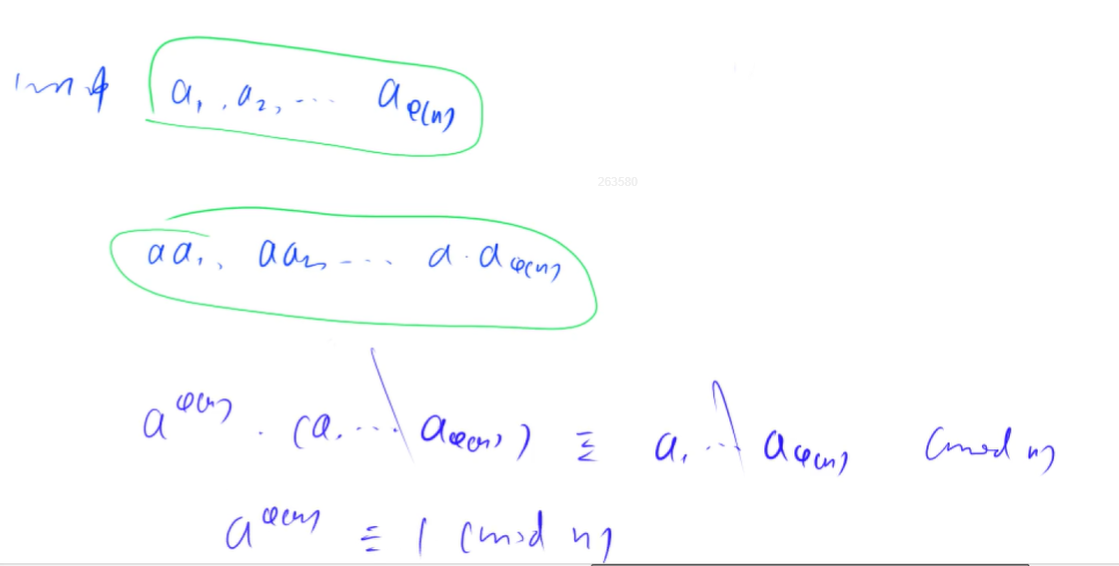 a₁, a₂, ⋯ a_φ(n)
263580
aa₁, aa₂ ⋯ a·a_φ(n)
a^φ(n) · (a₁ ⋯ a_φ(n)) ≡ a₁ ⋯ a_φ(n) (mod n)
a^φ(n) ≡ 1 (mod n)